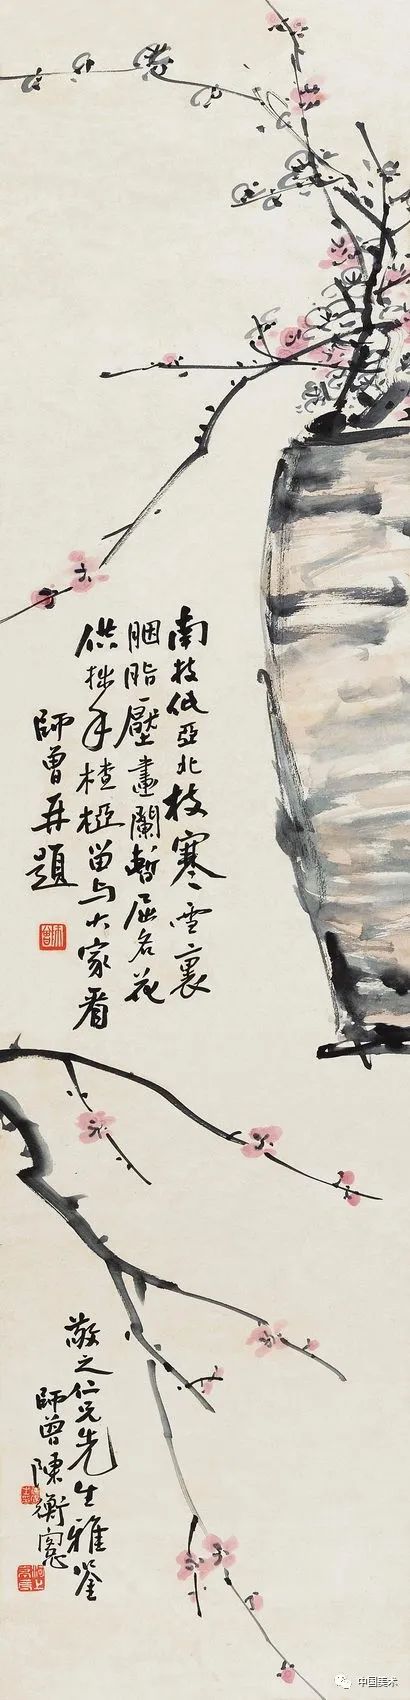 南枝低亞北枝寒雪裏
胭脂壓畫闌暫屈名花
供拙手楂椏留与大家看
師曾再題
敬之仁兄先生雅鉴
師曾陳衡恪
中国美术